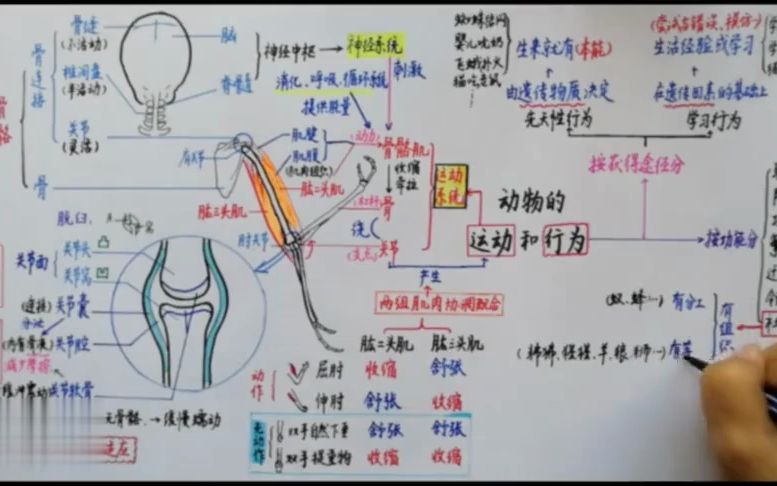 骨缝
(不活动)
椎间盘
(半活动)
关节
(灵活)
骨连接
骨
脑
脊骨
神经中枢
神经系统
消化、呼吸、循环系统
提供能量
刺激
肩关节
肌腱
肌腹
肱二头肌
肱三头肌
肘关节
(动力)
骨骼肌
收缩
牵拉
骨
绕
(支点)
关节
运动系统
产生
两组肌肉协调配合
肱二头肌 肱三头肌
动作
屈肘 收缩 舒张
伸肘 舒张 收缩
无动作
双手自然下垂 舒张 舒张
双手提重物 收缩 收缩
脱臼
关节面
关节头
关节窝
(连接)关节囊
分泌
(内有滑液)关节腔
减少摩擦
缓冲震动 关节软骨
无骨骼 → 缓慢蠕动
动物的
运动和行为
蜘蛛结网
婴儿吃奶
飞蛾扑火
猫吃老鼠
生来就有(本能)
由遗传物质决定
先天性行为
(尝试与错误、模仿…)
生活经验或学习
在遗传因素的基础上
学习行为
按获得途径分
按功能分
(蚁、蜂…) 有分工
(狒狒、猩猩、羊、狼、狮…) 有
有组织